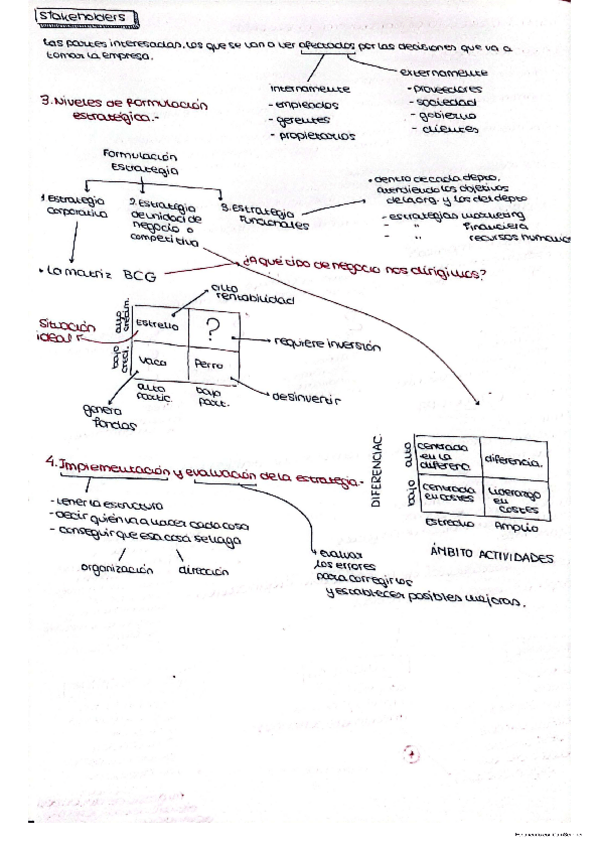 Stakeholders
Las partes interesadas, los que se van a ver afectados por las decisiones que va a
tomar la empresa.
internamente
- empleados
- gerentes
- propietarios
externamente
- proveedores
- sociedad
- gobierno
- clientes
3. Niveles de formulación
estratégica.-
Formulación
Estrategia
1 Estrategia
corporativa
2. Estrategia
de unidad de
negocio o
competitiva
3. Estrategia
Funcionales
• dentro de cada depto,
atendiendo los objetivos
de la org. y los del depto
- estrategias marketing
- " financiera
- " recursos humanos
• La matriz BCG
¿A qué tipo de negocio nos dirigimos?
alta
rentabilidad
Situación
ideal
alto crecim.
Estrella
?
requiere inversión
bajo creci.
Vaca
Perro
desinvertir
alta
partic.
baja
part.
genera
fondos
DIFERENCIAC.
alto
centrada
en la
diferenc.
diferencia.
bajo
centrada
en costes
Liderazgo
en
costes
Estrecho
Amplio
ÁMBITO ACTIVIDADES
4. Implementación y evaluación de la estrategia.-
- tener la estructura
- decir quién va a hacer cada cosa
- conseguir que esa cosa se haga
organización
dirección
evaluar
los errores
para corregirlos
y establecer posibles mejoras.